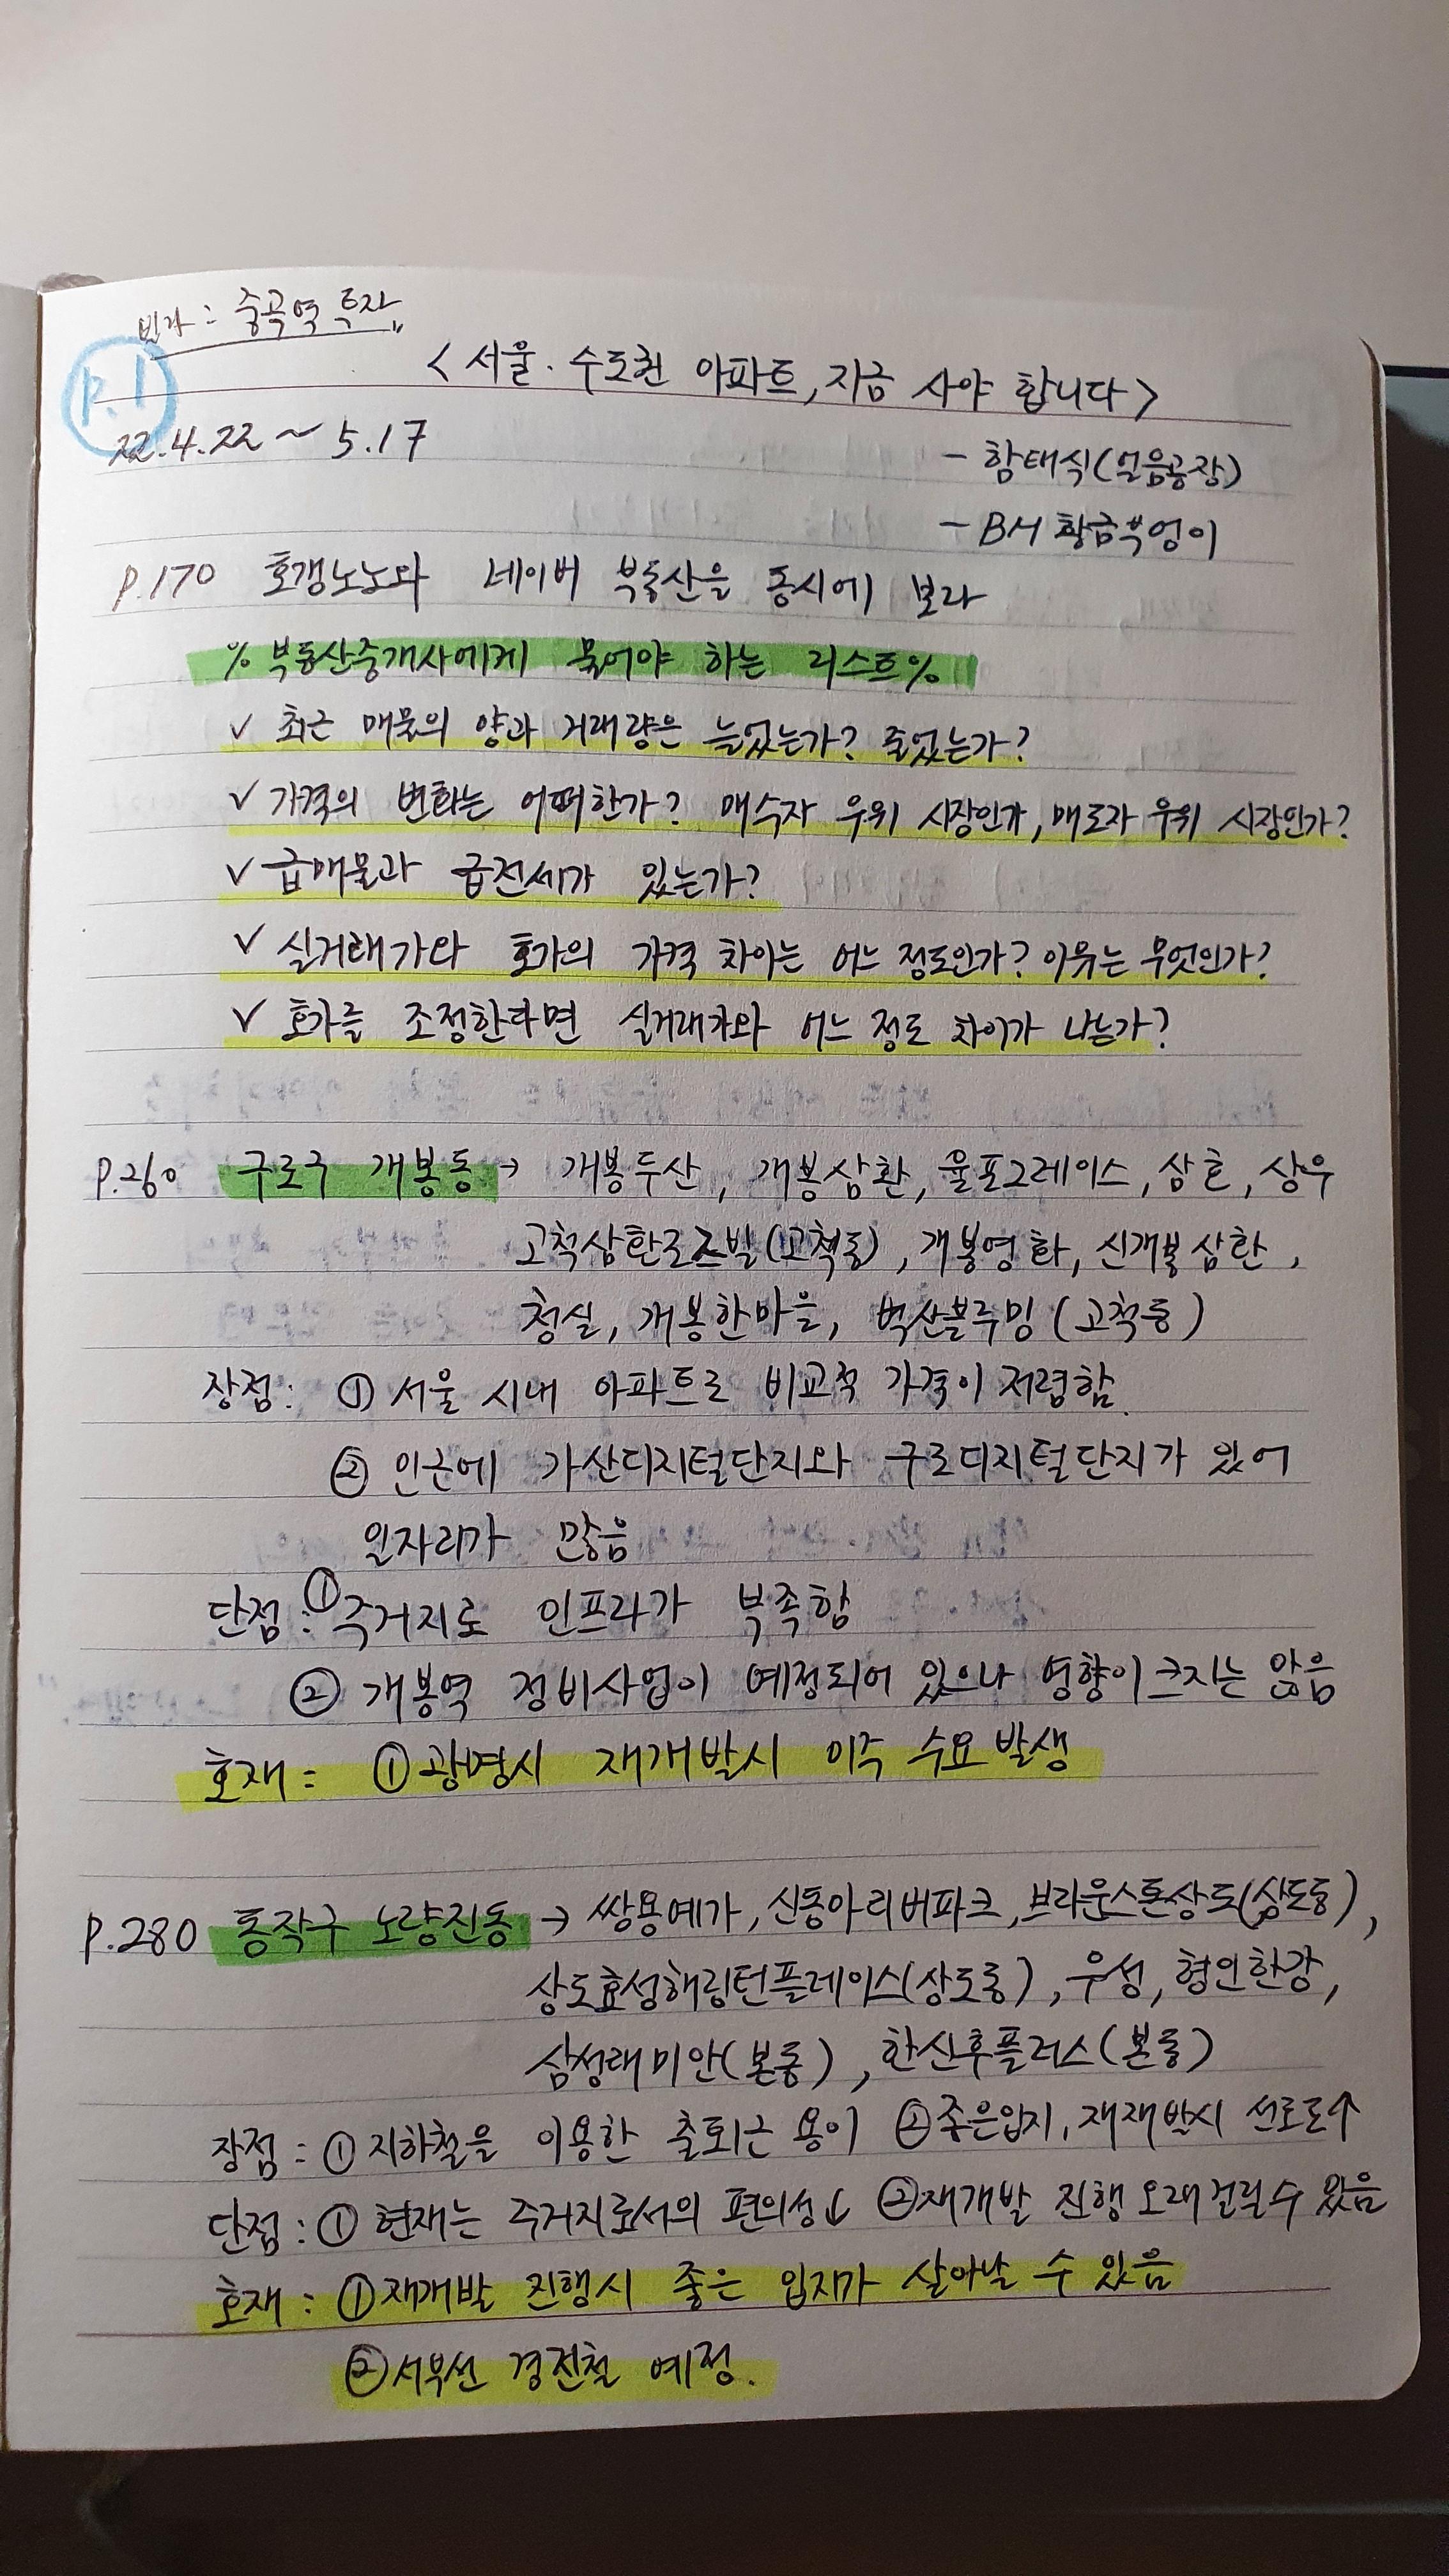 빈자 : 중곡역 투자
P.1
<서울. 수도권 아파트, 지금 사야 합니다>
22.4.22 ~ 5.17
- 함태식(얼음공장)
- BH 황금부엉이
P.170 호갱노노와 네이버 부동산을 동시에 보라
% 부동산중개사에게 물어야 하는 리스트%
✓ 최근 매물의 양과 거래량은 늘었는가? 줄었는가?
✓ 가격의 변화는 어떠한가? 매수자 우위 시장인가, 매도자 우위 시장인가?
✓ 급매물과 급전세가 있는가?
✓ 실거래가와 호가의 가격 차이는 어느 정도인가? 이유는 무엇인가?
✓ 호가를 조정한다면 실거래가와 어느 정도 차이가 나는가?
P.260 구로구 개봉동 → 개봉두산, 개봉삼환, 율포그레이스, 삼호, 상우
고척삼환로즈빌(고척동), 개봉영화, 신개봉삼환,
청실, 개봉한마을, 벽산블루밍(고척동)
장점: ① 서울 시내 아파트로 비교적 가격이 저렴함.
② 인근에 가산디지털단지와 구로디지털단지가 있어
일자리가 많음
단점: ① 주거지로 인프라가 부족함
② 개봉역 정비사업이 예정되어 있으나 영향이 크지는 않음
호재 : ① 광명시 재개발시 이주 수요 발생
P.280 동작구 노량진동 → 쌍용예가, 신동아리버파크, 브라운스톤상도(상도동),
상도효성해링턴플레이스(상도동), 우성, 형인한강,
삼성래미안(본동), 한신휴플러스(본동)
장점 : ① 지하철을 이용한 출퇴근 용이 ② 좋은입지, 재재발시 선호도↑
단점 : ① 현재는 주거지로서의 편의성↓ ② 재개발 진행 오래걸릴수 있음
호재 : ① 재개발 진행시 좋은 입지가 살아날 수 있음
② 서부선 경전철 예정.